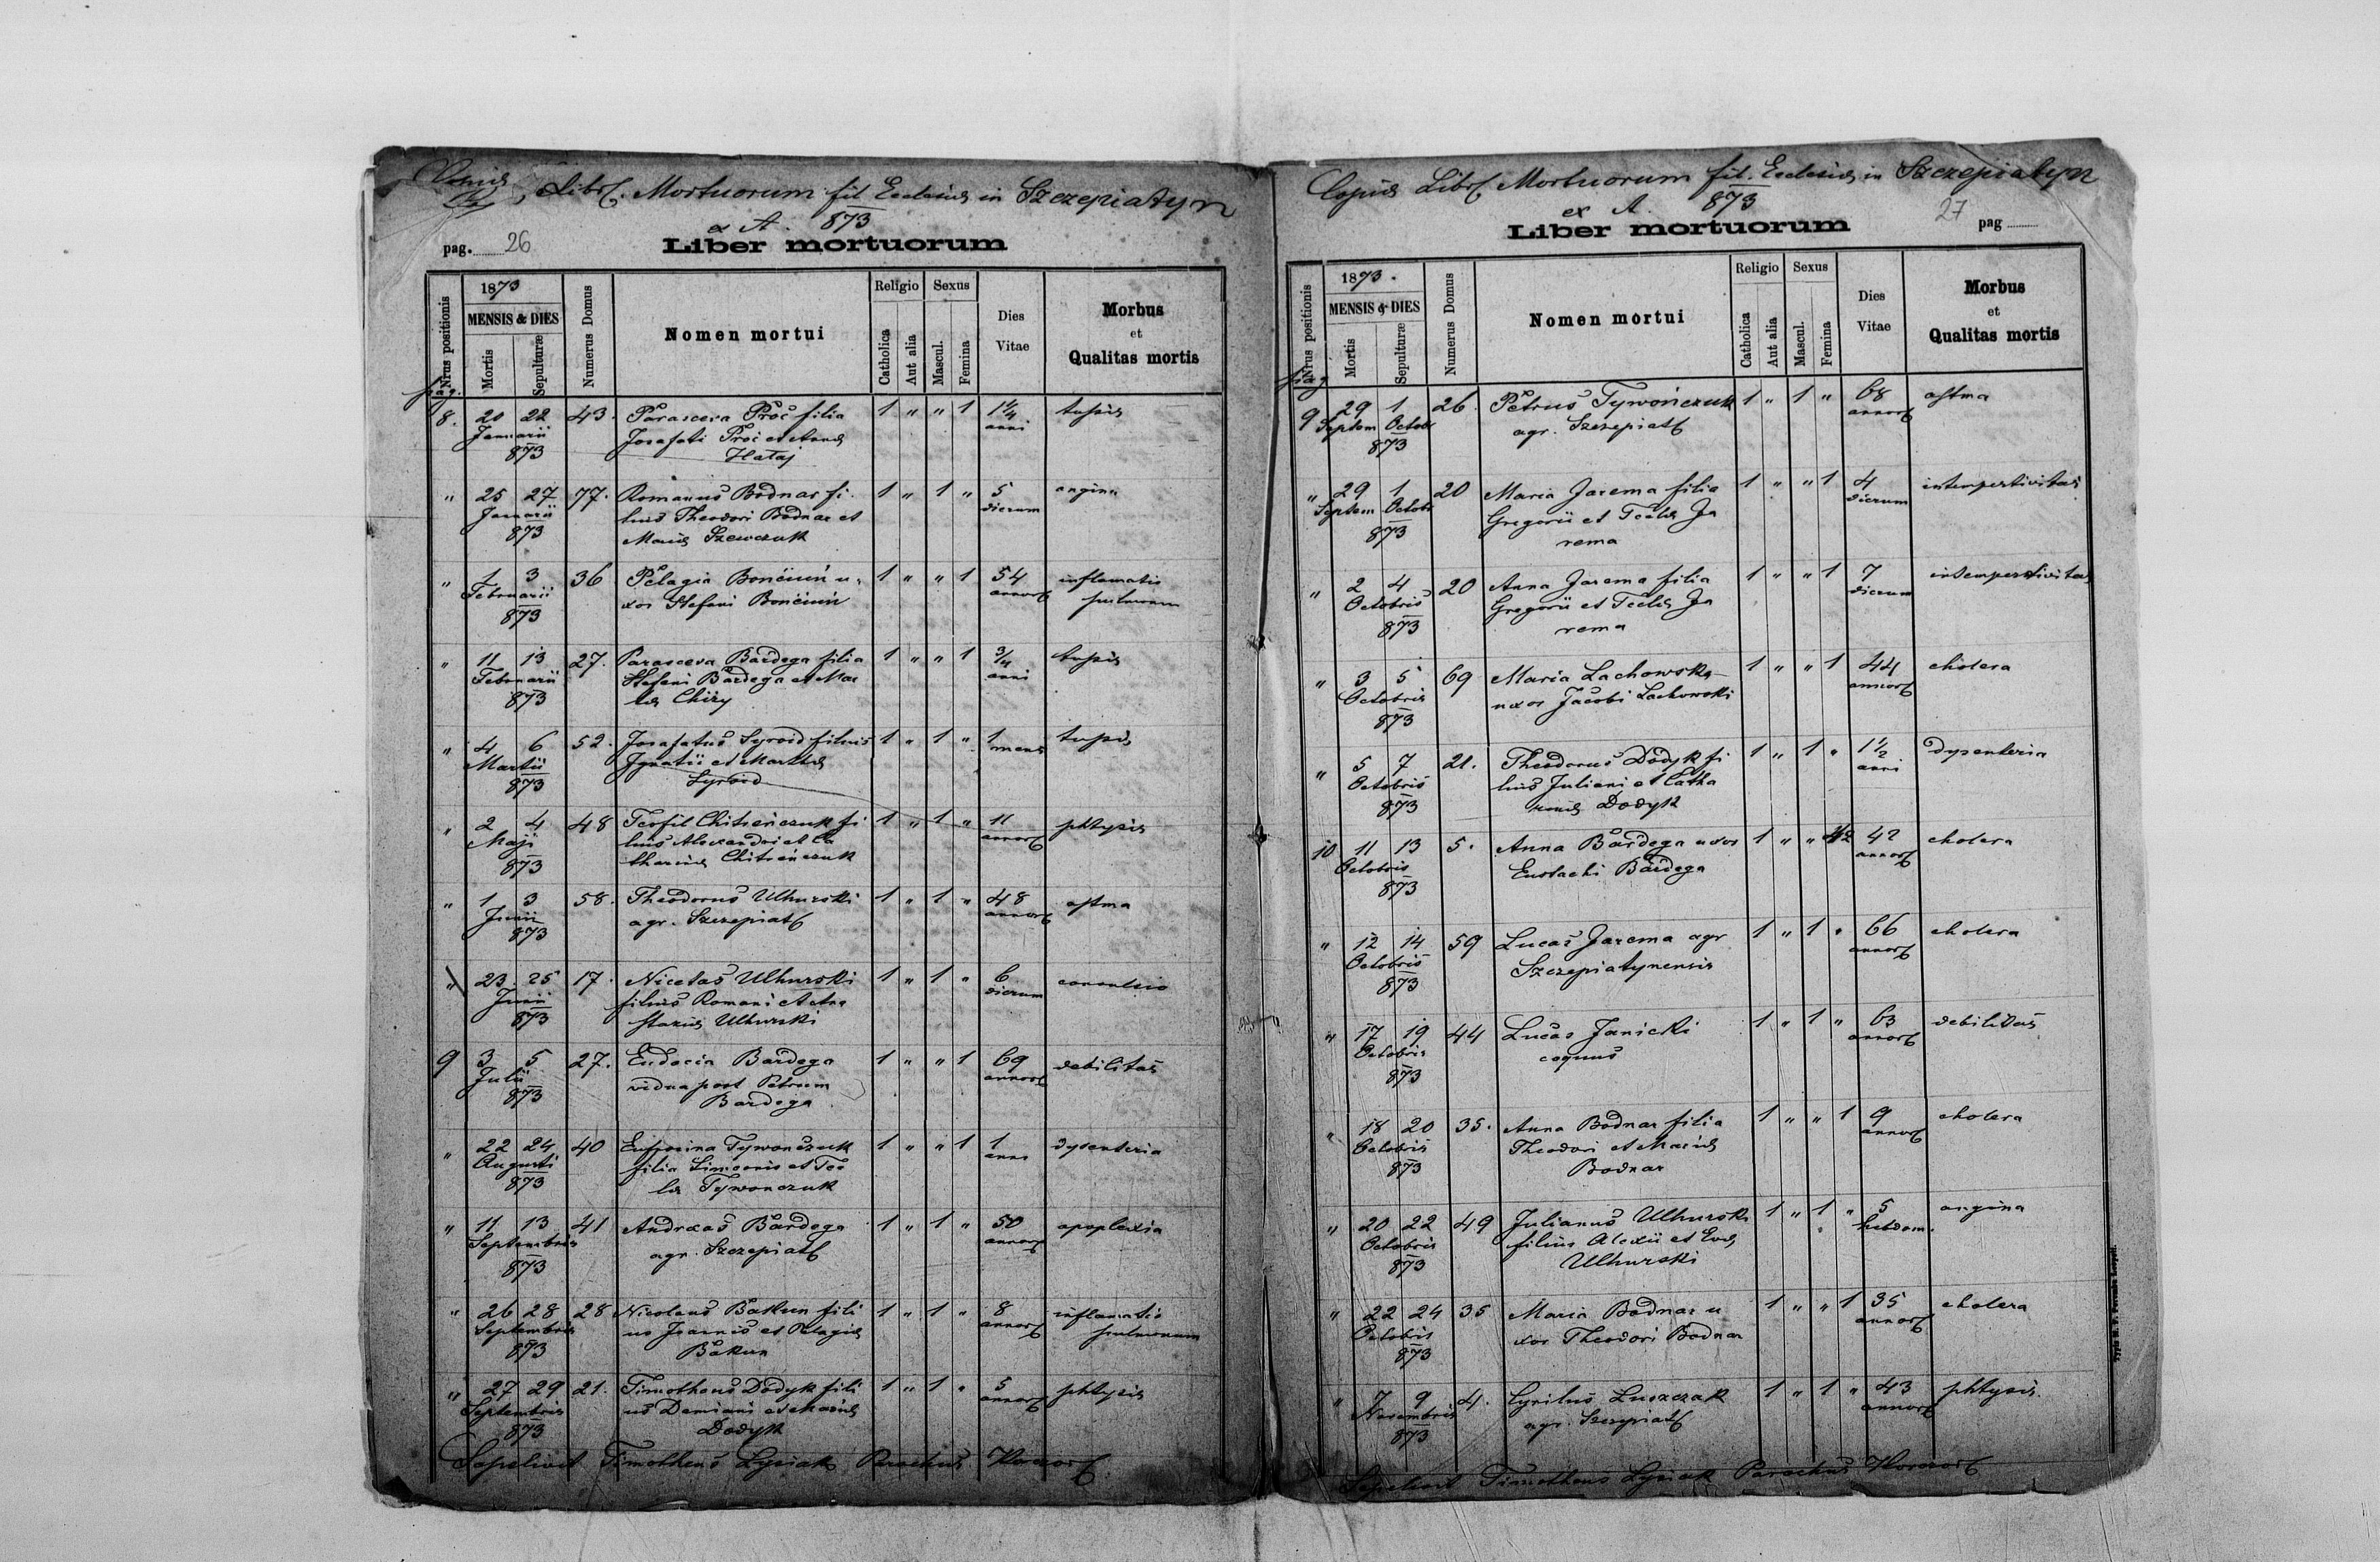 Libr. Mortuorum fil. Ecclesiæ in Szczepiatyn
ex A. 873
pag. 26
Liber mortuorum
Nrus positionis
1873
MENSIS & DIES
Mortis
Sepulturæ
Numerus Domus
Nomen mortui
Religio
Catholica
Aut alia
Sexus
Mascul.
Femina
Dies
Vitae
Morbus
et
Qualitas mortis
pag.
8. 20 22 43. Parasceva Proć filia 1 " " 1 1 1/4 tussis
Januarii Josafati Proć et Annæ anni
873 Hataj
" 25 27 77. Romanus Bodnar fi 1 " 1 " 5 angina
Januarii lius Theodori Bodnar et dierum
873 Mariæ Szewczuk
" 1 3 36 Pelagia u 1 " " 1 54 inflamatio
Februarii xor Stefani annor pulmonum
873
" 11 13 27. Parasceva Bardega filia 1 " " 1 3/4 tussis
Februarii Stefani Bardega et Mar anni
873 Chiży
" 4 6 52. Josafatus Syroid filius 1 " 1 " 1 tussis
Martii Ignatii et Marthæ mens
873 Syroid
" 2 4 48 Teofil fi 1 " 1 " 11 phtysis
Maji lius Alexandri et Ca annor
873 tharinæ
" 1 3 58. Theodorus Uhurski 1 " 1 " 48 astma
Junii agr. Szczepiat annor
873
" 23 25 17. Nicetas Uhurski 1 " 1 " 6 convulsio
Junii filius Romani et Ana dierum
873 stasiæ Uhurski
9 3 5 27. Eudocia Bardega 1 " " 1 69 debilitas
Julii vidua post Petrum annor
873 Bardega
" 22 24 40 Tywonczuk 1 " " 1 1 dysenteria
Augusti filia Simeonis et Tec anni
873 læ Tywonczuk
" 11 13 41 Andreas Bardega 1 " 1 " 50 apoplexia
Septembris agr. Szczepiat annor
873
" 26 28 28 Nicolaus Bakun fili 1 " 1 " 8 inflamatio
Septembris us Joannis et Pelagiæ annor pulmonum
873 Bakun
" 27 29 21. Timotheus Dodyk fili 1 " 1 " 5 phtysis
Septembris us Damiani et Mariæ annor
873 Dodyk
Sepelivit Timotheus Lysiak Parochus
Copia Libr. Mortuorum fil. Ecclesiæ in Szczepiatyn
ex A. 873
27 pag
Liber mortuorum
Nrus positionis
1873.
MENSIS & DIES
Mortis
Sepulturæ
Numerus Domus
Nomen mortui
Religio
Catholica
Aut alia
Sexus
Mascul.
Femina
Dies
Vitae
Morbus
et
Qualitas mortis
pag
9 29 1 26. Petrus Tywończuk 1 " 1 " 68 astma
Septem Octob agr. Szczepiat annor
873
" 29 1 20 Maria Jarema filia 1 " " 1 4 intempestivitas
Septem Octob Gregorii et Teclæ Ja dierum
873 rema
" 2 4 20 Anna Jarema filia 1 " " 1 7 intempestivitas
Octobris Gregorii et Teclæ Ja dierum
873 rema
" 3 5 69 Maria Lachowska 1 " " 1 44 cholera
Octobris uxor Jacobi Lachowski annor
873
" 5 7 21. Theodorus Dodyk fi 1 " 1 " 1 1/2 dysenteria
Octobris lius Juliani et Catha anni
873 rinæ Dodyk
10 11 13 5. Anna Bardega uxor 1 " " 42 cholera
Octobris Eustachi Bardega annor
873
" 12 14 59 Lucas Jarema agr 1 " 1 " 66 cholera
Octobris Szczepiatynensis annor
873
" 17 19 44 Lucas Janicki 1 " 1 " 63 debilitas
Octobris coquus annor
873
" 18 20 35. Anna Bodnar filia 1 " " 1 9 cholera
Octobris Theodori et Mariæ annor
873 Bodnar
" 20 22 49 Julianus Uhurski 1 " 1 " 5 angina
Octobris filius Alexii et Evæ hebdom.
873 Uhurski
" 22 24 35 Maria Bodnar u 1 " " 1 35 cholera
Octobris xor Theodori Bodnar annor
873
" 7 9 4. Cyrilus Luszczak 1 " 1 " 43 phtysis
Novembris agr. Szczepiat annor
873
Sepelivit Timotheus Lysiak Parochus